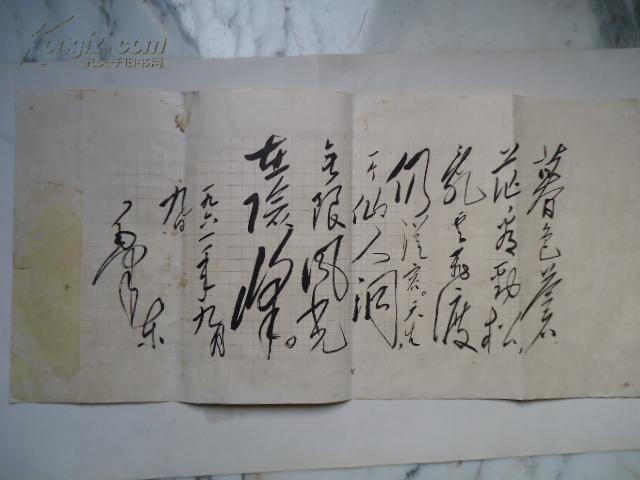 暮色苍
茫看劲松
乱云飞渡
仍从容。天生
一个仙人洞
无限风光
在险峰。
一九六一年九月
九日
毛泽东
Kongfz.com
孔夫子旧书网